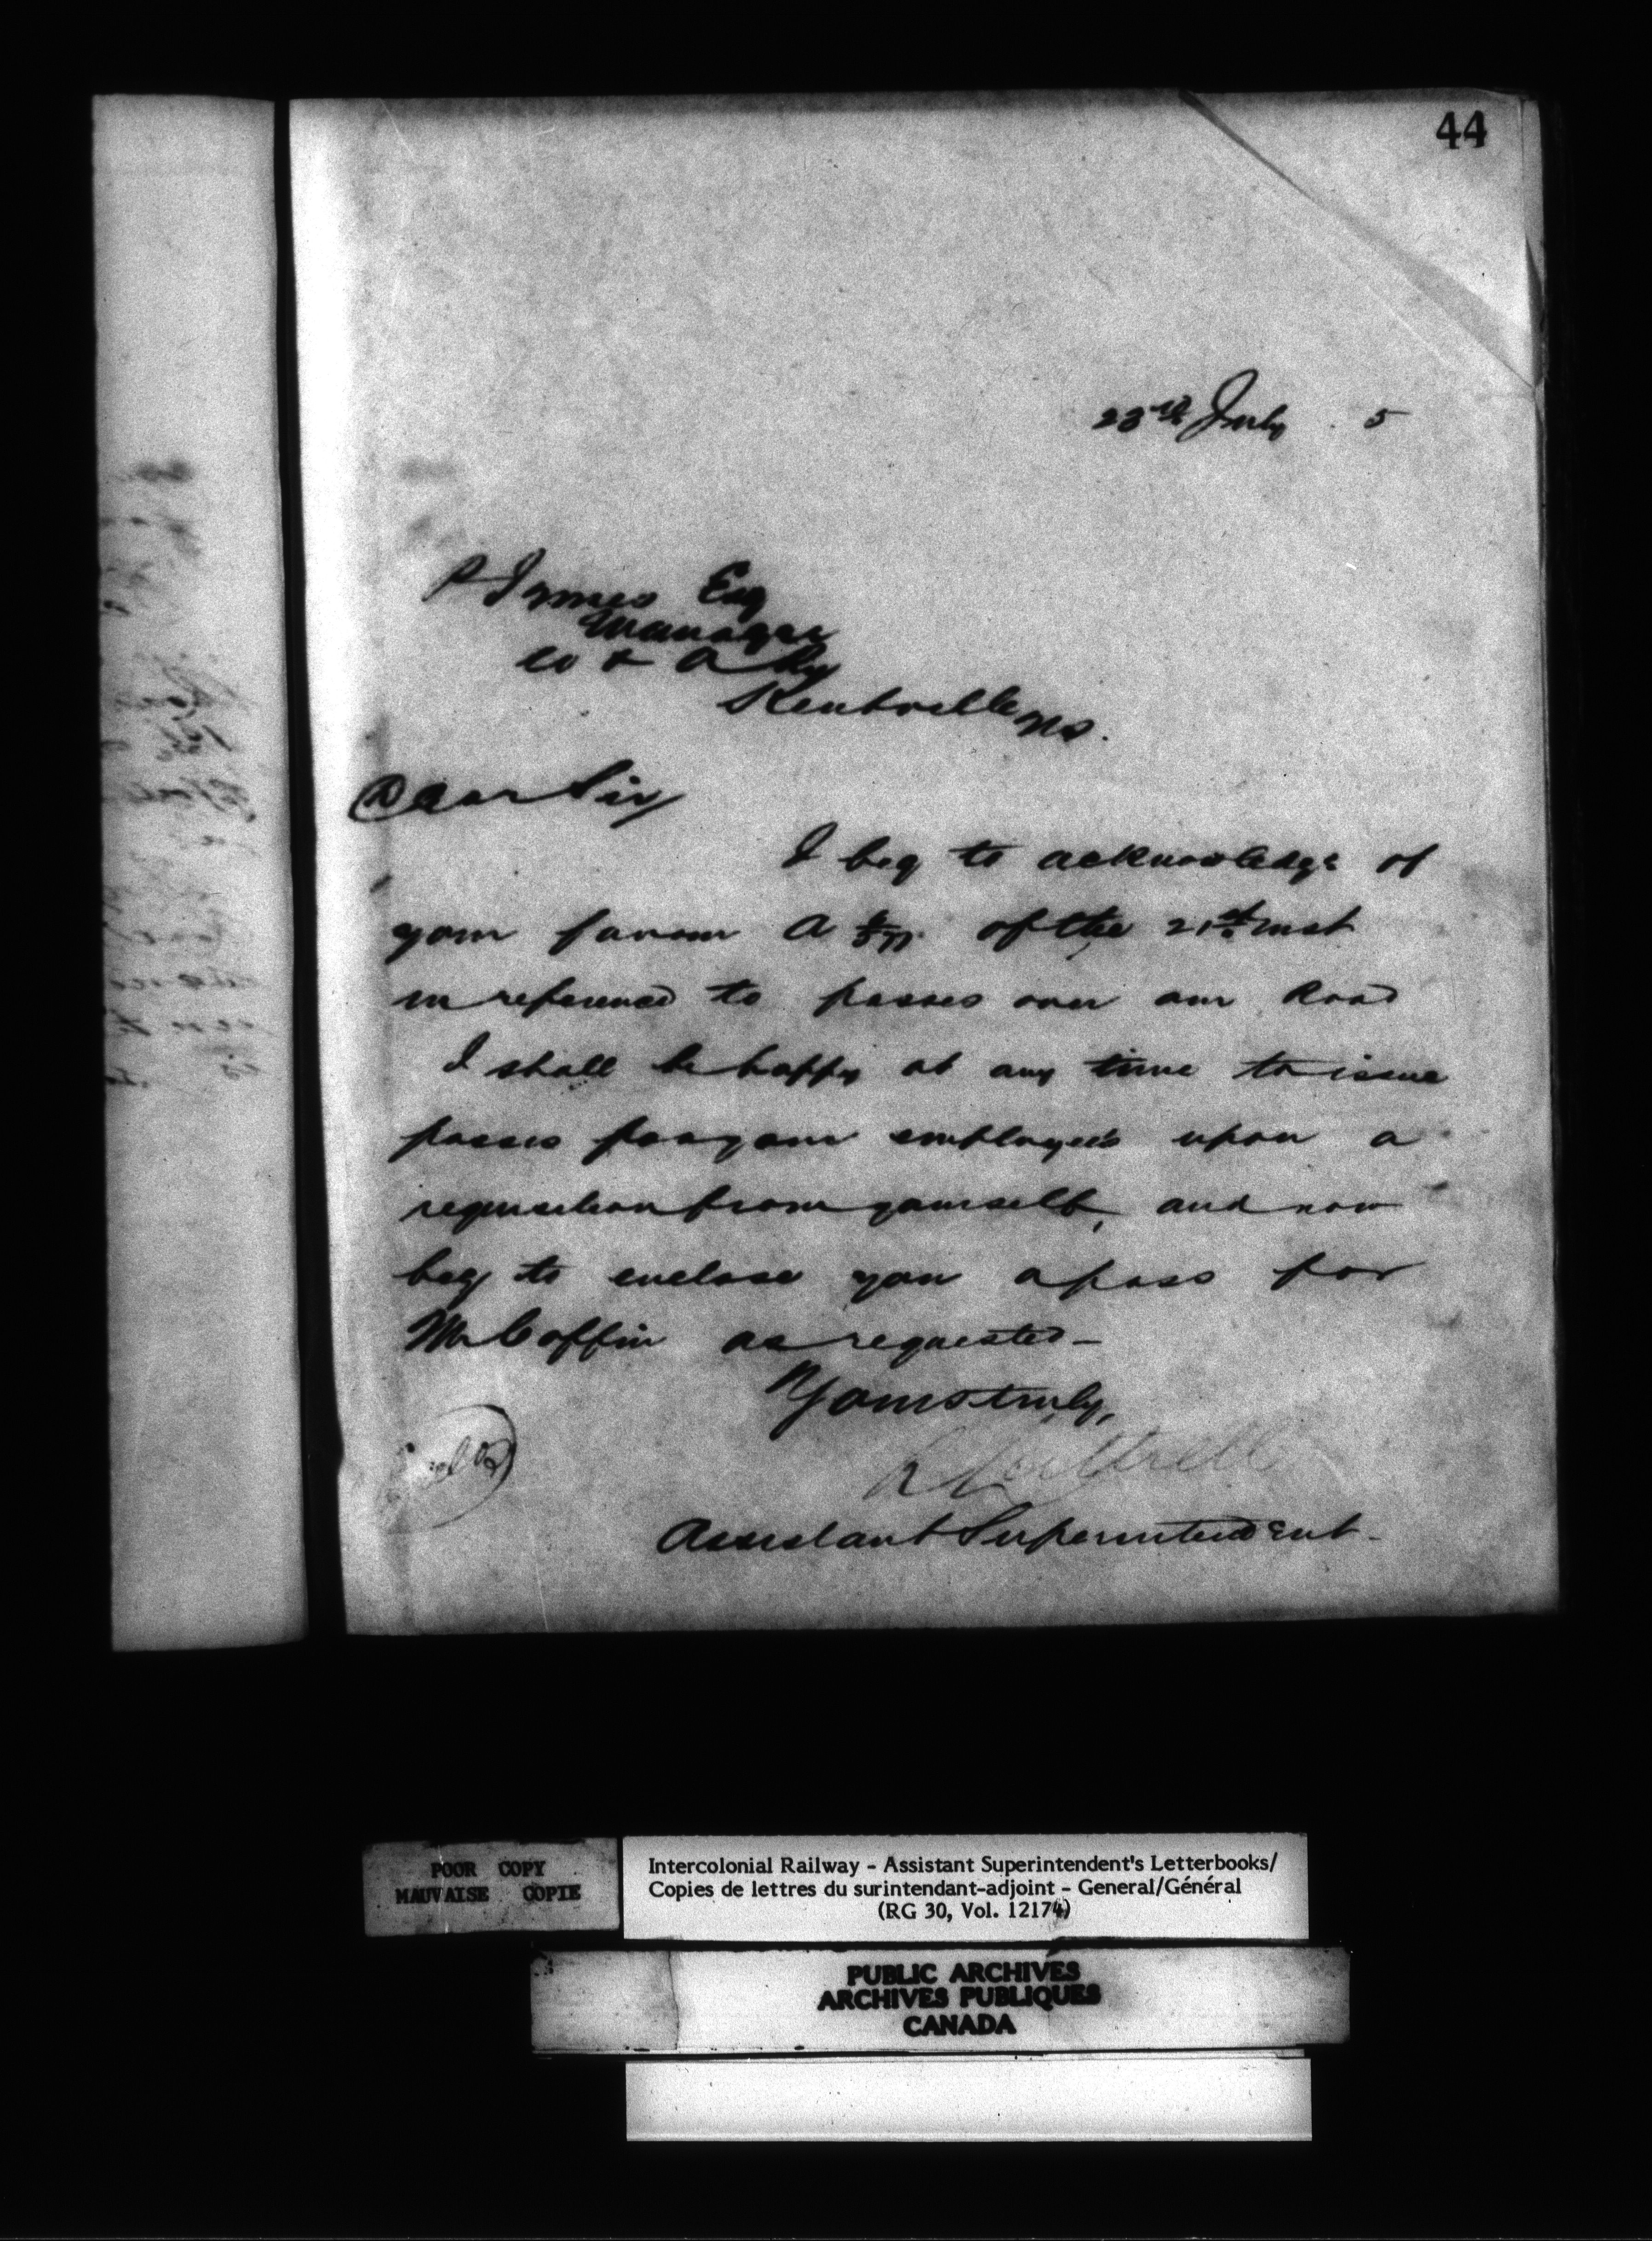 44
23rd July 5
P Innes Esq
Manager
W & A Ry
Kentville NS.
Dear Sir
I beg to acknowledge of
your favour A of the 21st inst
in reference to passes over our Road
I shall be happy at any time to issue
passes for your employees upon a
requisition from yourself, and now
beg to enclose you a pass for
Mr Coffin as requested –
Yours truly,
Assistant Superintendent –
POOR COPY
MAUVAISE COPIE
Intercolonial Railway - Assistant Superintendent's Letterbooks/
Copies de lettres du surintendant-adjoint - General/Général
(RG 30, Vol. 12174)
PUBLIC ARCHIVES
ARCHIVES PUBLIQUES
CANADA